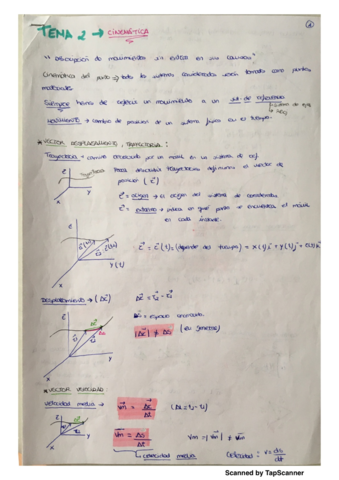 TEMA 2 → CINEMÁTICA
"Descripción de movimientos sin entrar en sus causas"
Cinemática del punto → todo los sistemas considerados serán tomados como puntos
materiales
Siempre hemos de referir un movimiento a un sist. de referencia
Movimiento → cambio de posición de un sistema físico en el tiempo.
* VECTOR DESPLAZAMIENTO, TRAYECTORIA:
Trayectoria → camino por un móvil en un sistema de ref.
Para describir trayectorias definimos el vector de
posición (r)
r = origen → el origen del sistema de coordenadas
r = extremo → indica en qué punto se encuentra el móvil
en cada instante.
z
x
y
r = r(t) = (depende del tiempo) = x(t)i + y(t)j + z(t)k
Desplazamiento → (Δr)
Δr = r₂ - r₁
Δs = espacio
|Δr| ≠ Δs
* VECTOR VELOCIDAD
Velocidad media →
vm = Δr / Δt
(Δt = t₂ - t₁)
vm = Δs / Δt
vm = |vm| ≠ vm
celeridad media
Celeridad: v = ds / dt
Scanned by TapScanner